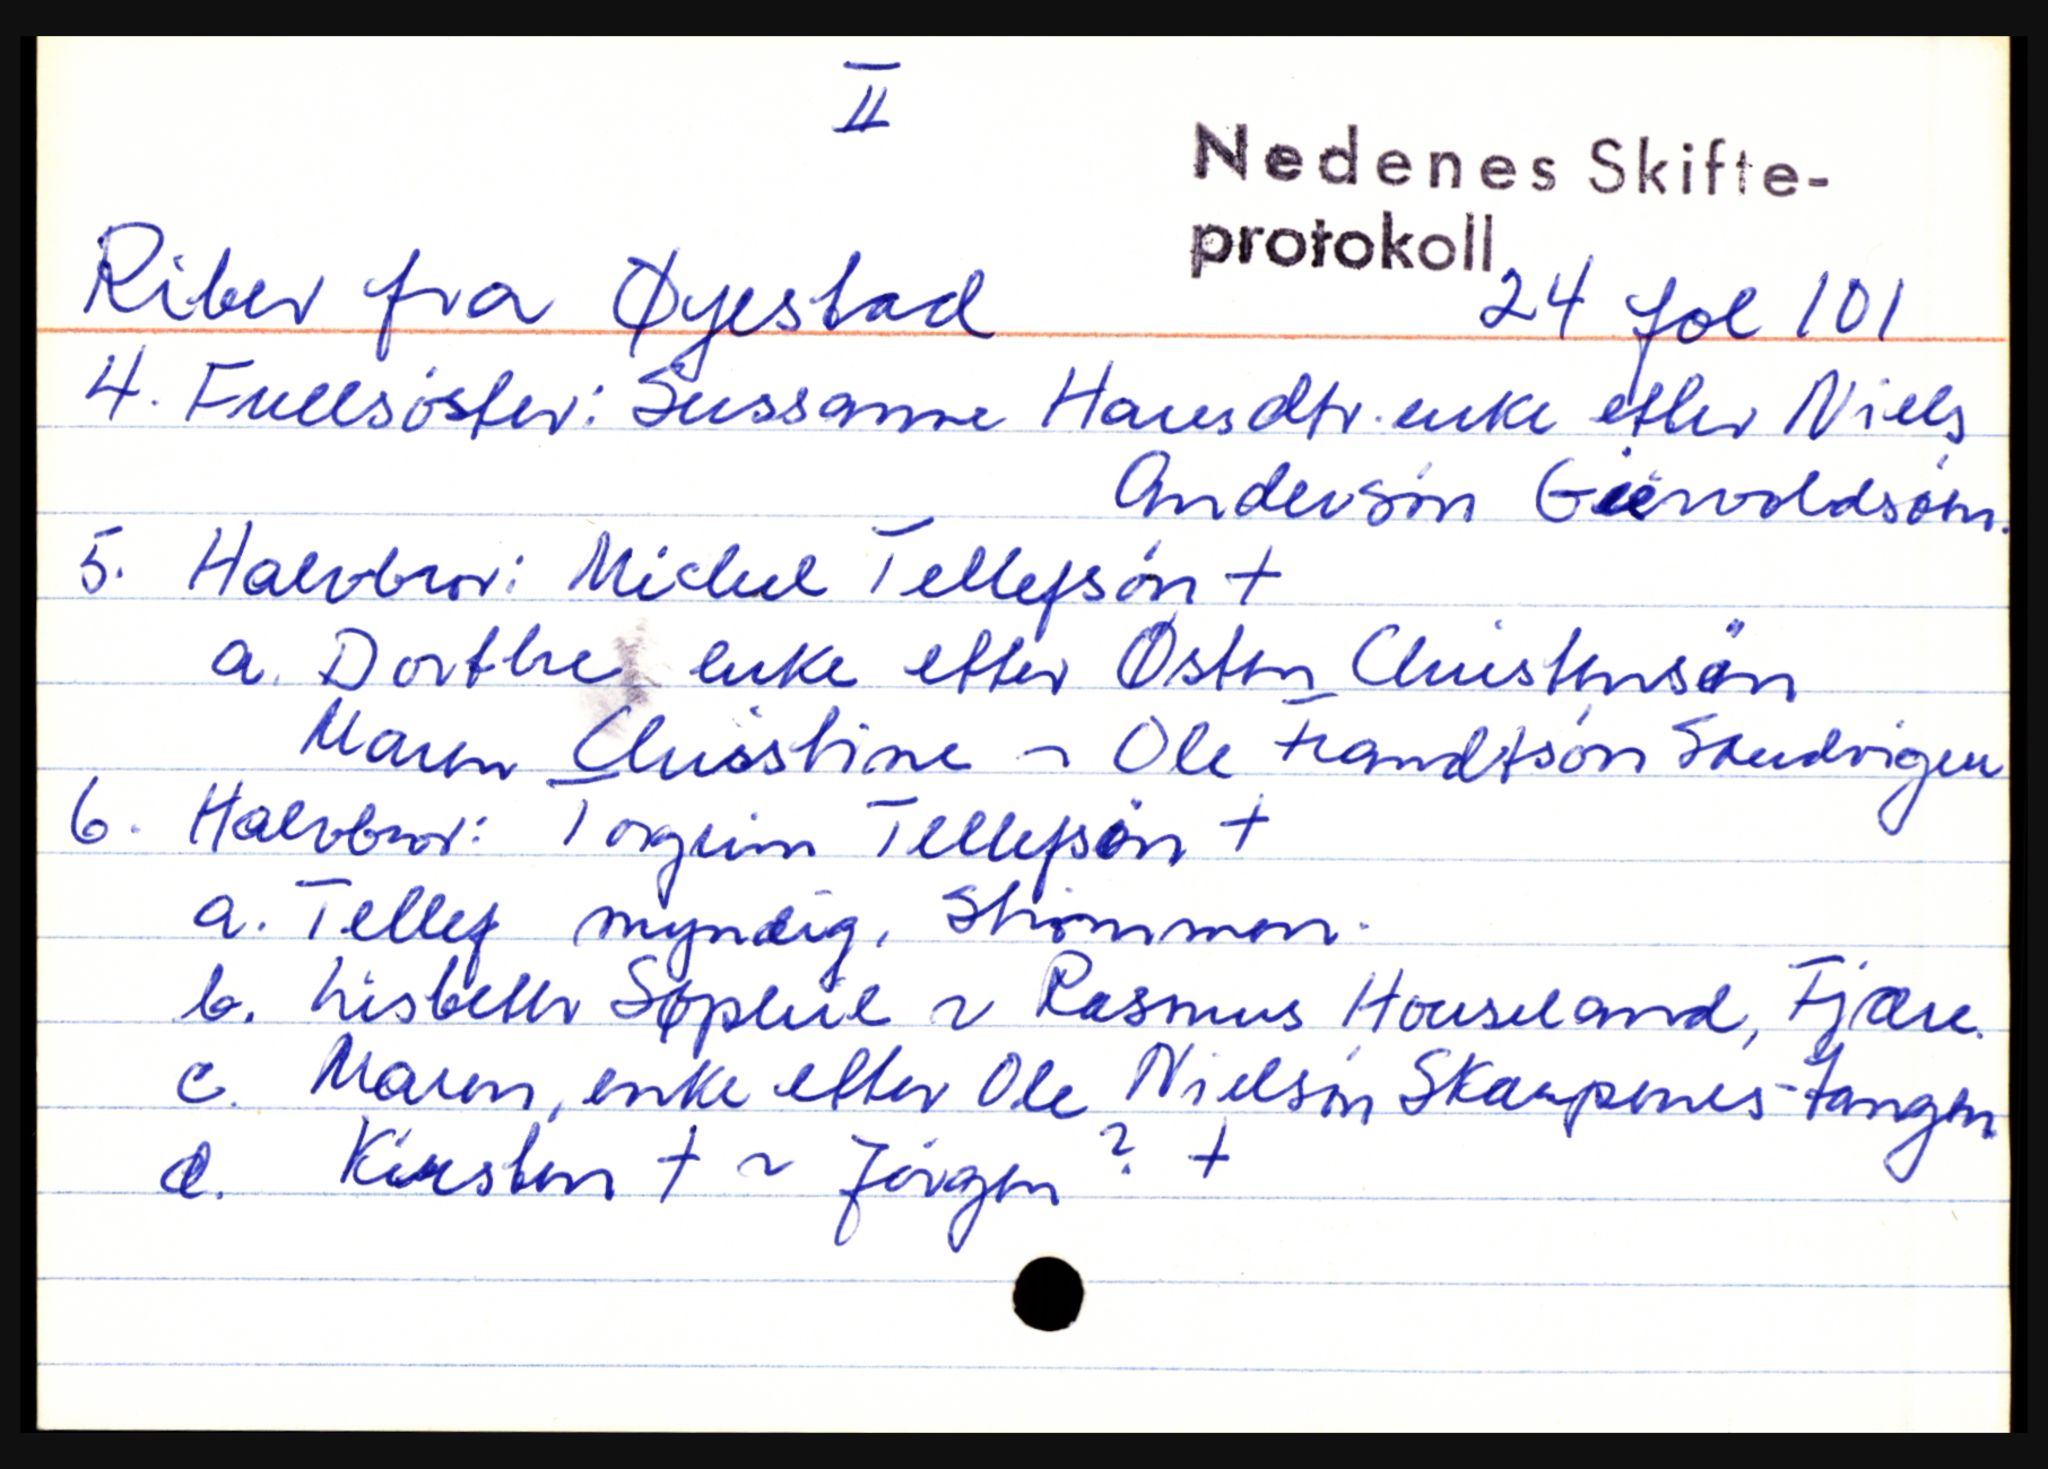 II
Nedenes Skifte-
protokoll
Riber fra Øyestad 24 fol 101
4. Fullsöster: Sussanne Hansdtr. enke etter Niels
Andersön Giervoldsöm.
5. Halvbror: Michel Tellefsön +
a. Dorthe enke etter Østen Christensön
Maren Chrisstine ~ Ole Frandtsön Skudvigen
6. Halvbror: Torgrim Tellefsön +
a. Tellef myndig, Strömmen.
b. Lisbeth Sophie ~ Rasmus Houseland, Fjære.
c. Maren, enke etter Ole Nielsön Skarpenes-tangen
d. Kirsten + ~ Jörgen? +